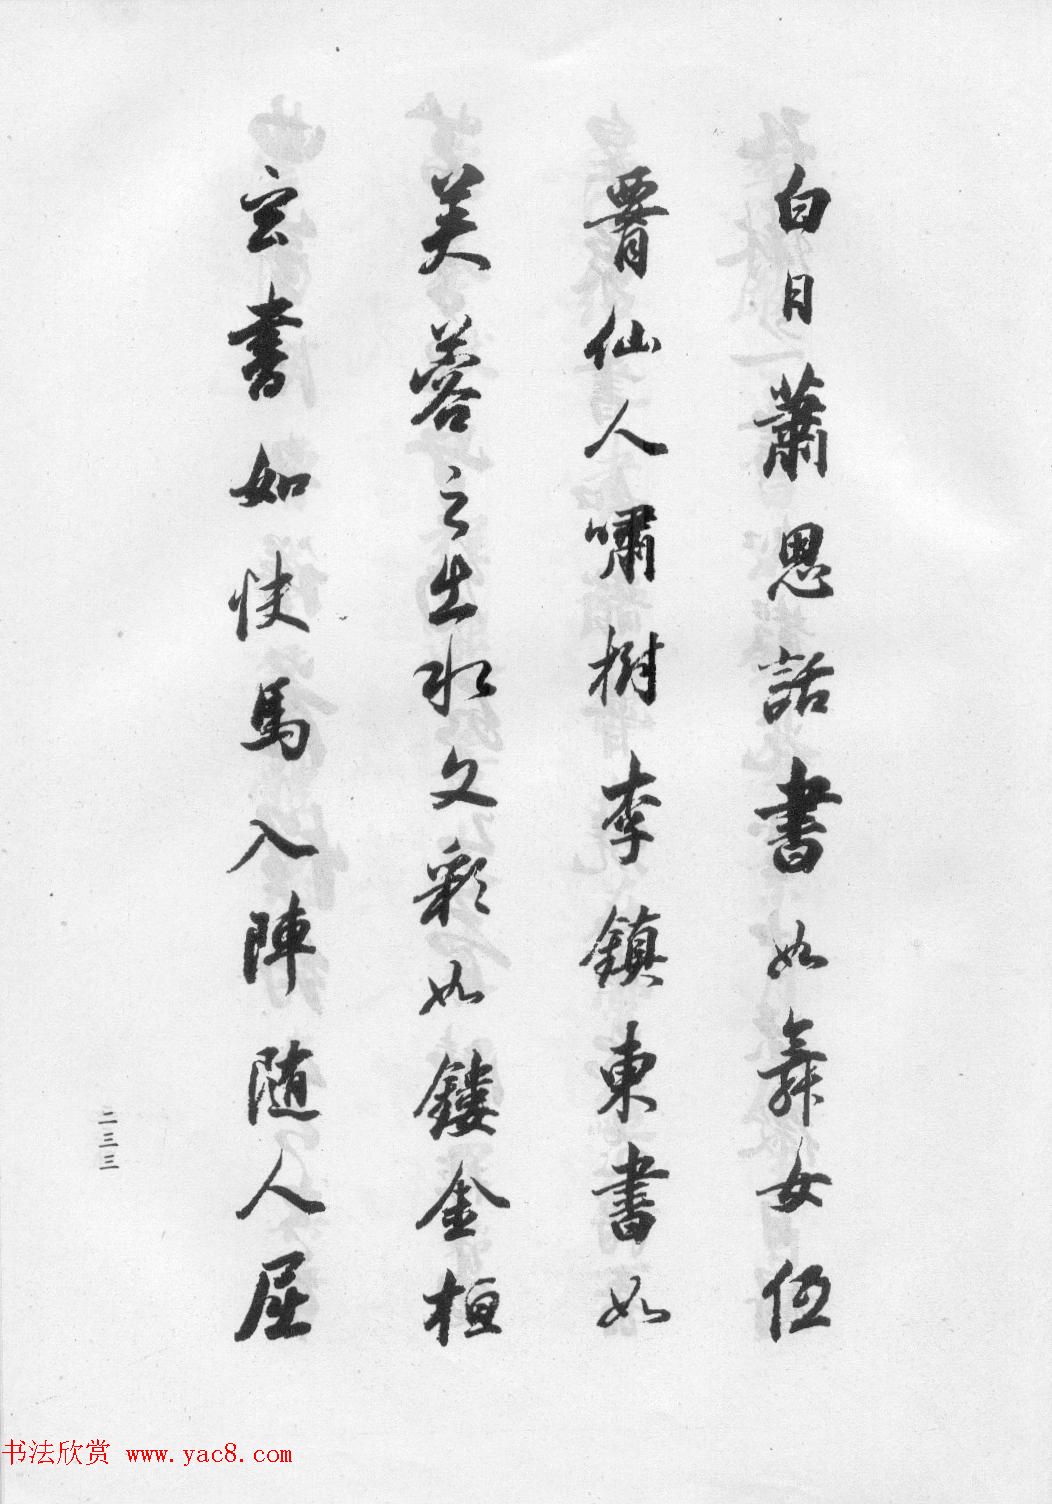 白日蕭思話書如舞女低
腰仙人嘯樹李鎮東書如
芙蓉之出水文彩如鏤金桓
玄書如快馬入陣随人屈
二三三
书法欣赏 www.yac8.com